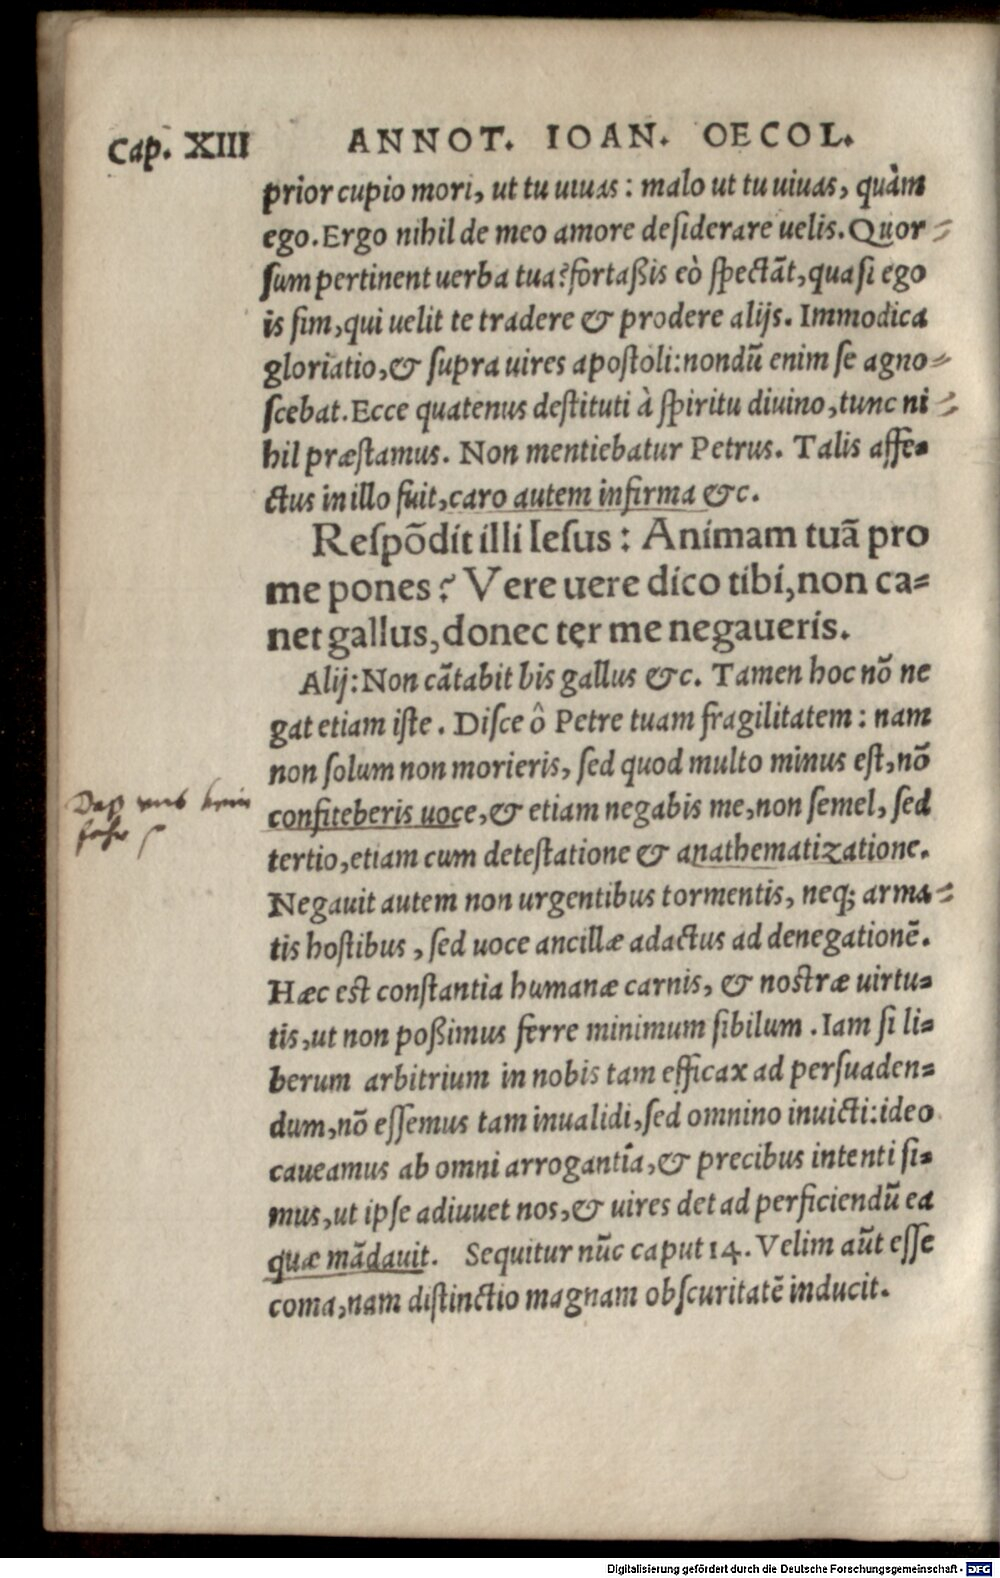 Cap. XIII ANNOT. IOAN. OECOL.
prior cupio mori, ut tu uiuas: malo ut tu uiuas, quàm
ego. Ergo nihil de meo amore desiderare uelis. Quor⸗
sum pertinent uerba tua? fortaßis eò spectāt, quasi ego
is sim, qui uelit te tradere & prodere alijs. Immodica
gloriatio, & supra uires apostoli: nondū enim se agno⸗
scebat. Ecce quatenus destituti à spiritu diuino, tunc ni⸗
hil præstamus. Non mentiebatur Petrus. Talis affe⸗
ctus in illo fuit, caro autem infirma &c.
Respōdit illi Iesus: Animam tuā pro
me pones? Vere uere dico tibi, non ca⸗
net gallus, donec ter me negaueris.
Alij: Non cātabit bis gallus &c. Tamen hoc nō ne
gat etiam iste. Disce ô Petre tuam fragilitatem: nam
non solum non morieris, sed quod multo minus est, nō
confiteberis uoce, & etiam negabis me, non semel, sed
tertio, etiam cum detestatione & anathematizatione.
Negauit autem non urgentibus tormentis, neq; arma⸗
tis hostibus, sed uoce ancillæ adactus ad denegationē.
Hæc est constantia humanæ carnis, & nostræ uirtu⸗
tis, ut non poßimus ferre minimum sibilum. Iam si li⸗
berum arbitrium in nobis tam efficax ad persuaden⸗
dum, nō essemus tam inualidi, sed omnino inuicti: ideo
caueamus ab omni arrogantia, & precibus intenti si⸗
mus, ut ipse adiuuet nos, & uires det ad perficiendū ea
quæ mādauit. Sequitur nūc caput 14. Velim aūt esse
coma, nam distinctio magnam obscuritatē inducit.
Digitalisierung gefördert durch die Deutsche Forschungsgemeinschaft - DFG